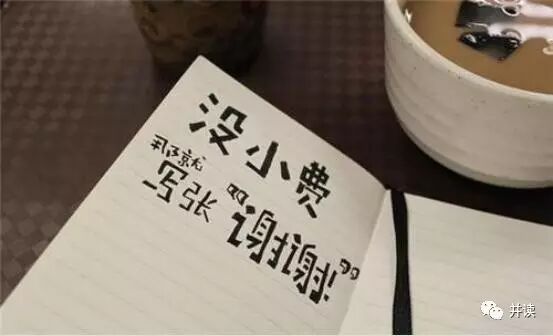 没小费
那就
写张“谢谢!”
并读